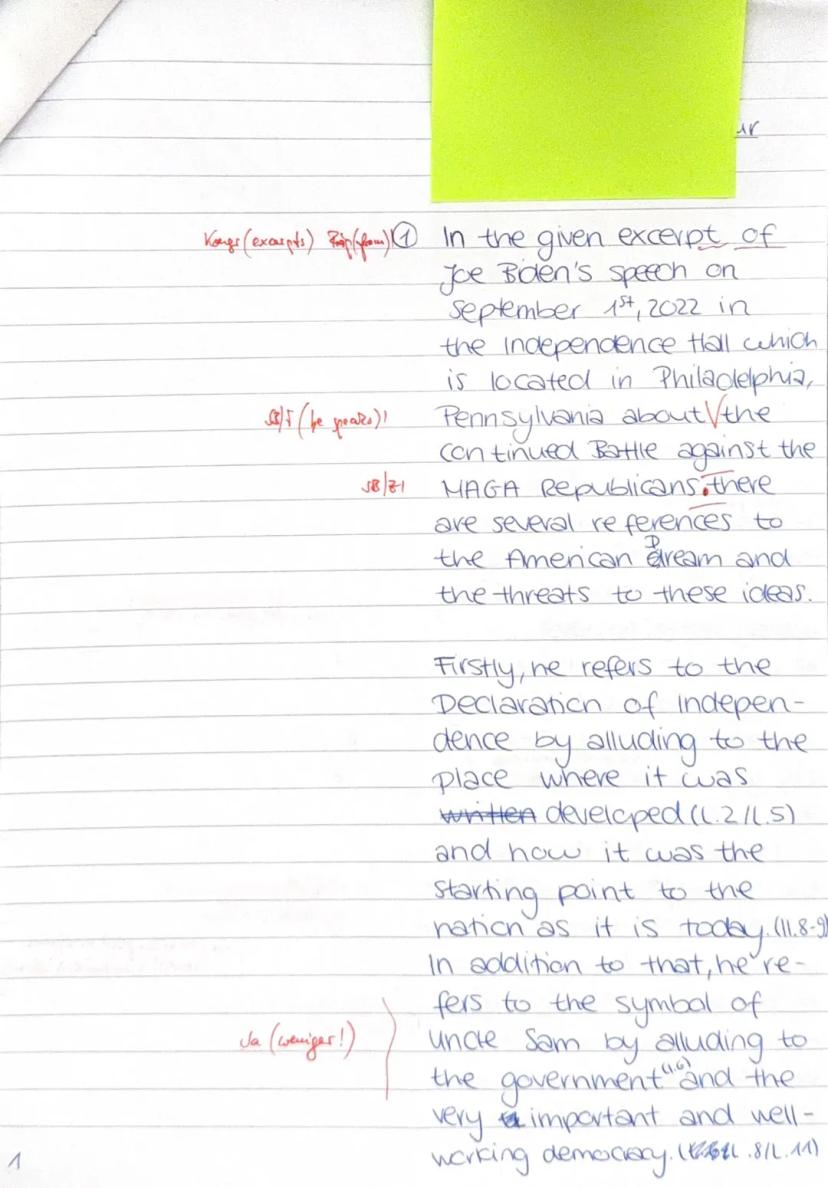 ur
Kongr (excerpts) Präp (from)! ① In the given excerpt of
Joe Biden's speech on
september 1st, 2022 in
the Independence Hall which
is located in Philadelphia,
SB/T (he speaks)! Pennsylvania about √ the
continued Battle against the
SB/Z! MAGA Republicans. there
are several references to
the American Dream and
the threats to these ideas.
Firstly, he refers to the
Declaration of Indepen-
dence by alluding to the
place where it was
written developed (l.2/l.5)
and how it was the
starting point to the
nation as it is today. (ll.8-9)
In addition to that, he re-
fers to the symbol of
Ja (weniger!) Uncle Sam by alluding to
the government (l.6) and the
very important and well-
1 working democracy. (l.8/l.11)